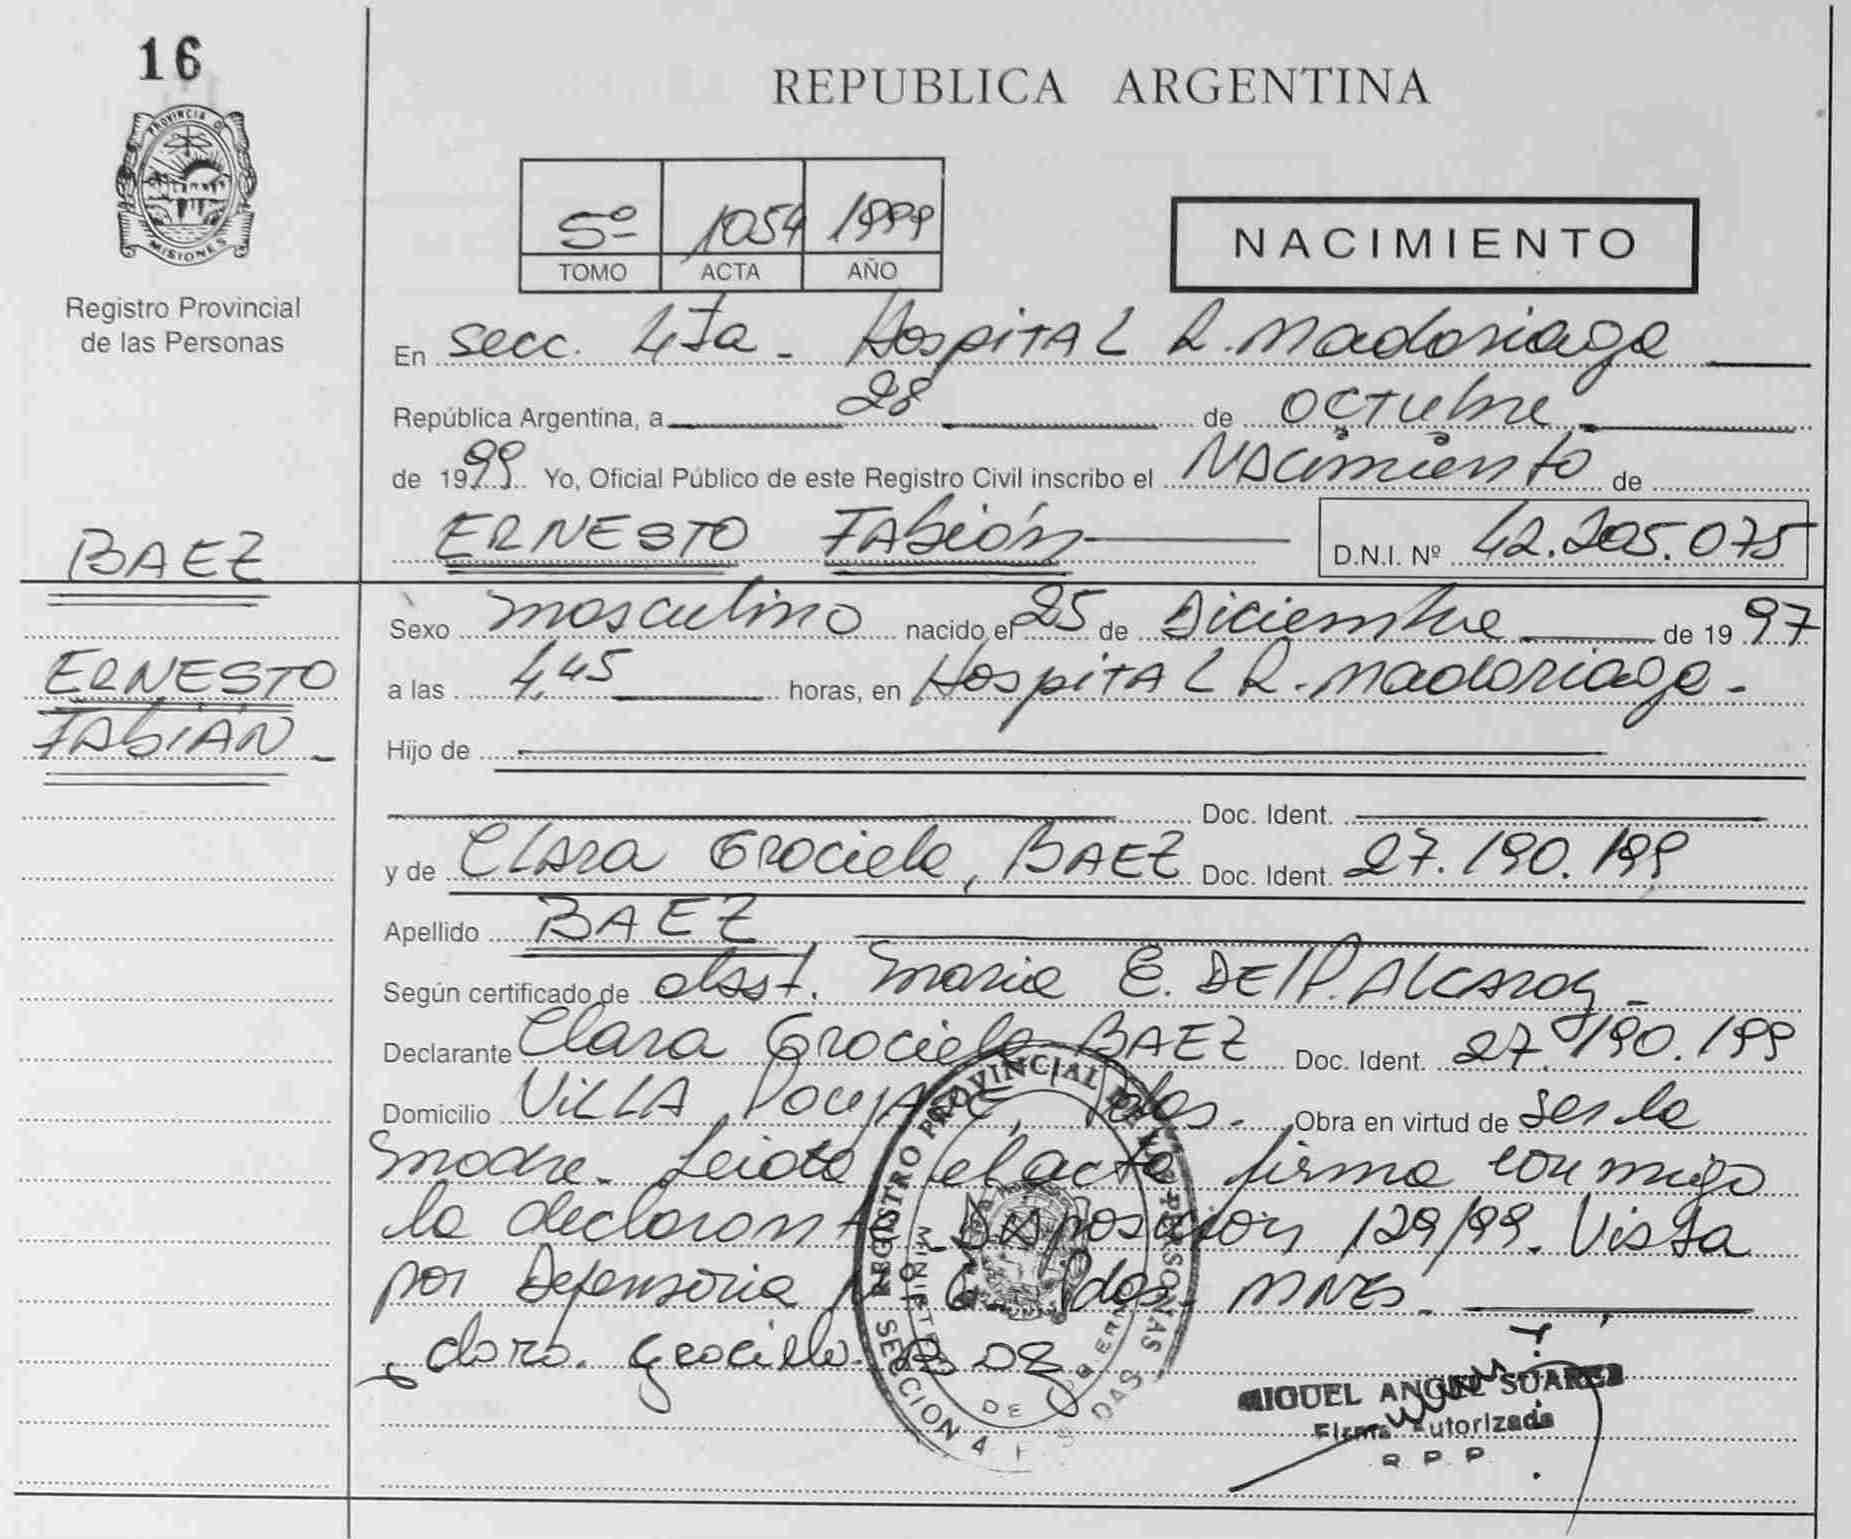 16
PROVINCIA D
MISIONES
Registro Provincial
de las Personas
REPUBLICA ARGENTINA
5º 1054 1999
TOMO ACTA AÑO
NACIMIENTO
En secc. 4ta - HospitAL R. Madariaga
República Argentina, a 28 de octubre
de 1999 Yo, Oficial Público de este Registro Civil inscribo el NAcimiento de
BAEZ
ERNESTO FAbián D.N.I. Nº 42.205.075
Sexo masculino nacido el 25 de Diciembre de 1997
ERNESTO
FAbiÁN -
a las 4,45 horas, en HospitAL R. Madariaga -
Hijo de
Doc. Ident.
y de Clara Graciela, BAEZ Doc. Ident. 27.190.199
Apellido BAEZ
Según certificado de obst. Maria E. DEL P. Alcaraz -
Declarante Clara Graciela BAEZ Doc. Ident. 27.190.199
Domicilio ViLLA Pdas. - Obra en virtud de ser la
madre. Leida el acta firma conmigo
la declarante Disposicion 129/99. Vista
por Defensoria Pdas. MNES.
REGISTRO PROVINCIAL DE LAS PERSONAS
SECCION 4
MIGUEL ANGEL SUAREZ
Firma Autorizada
R. P. P.